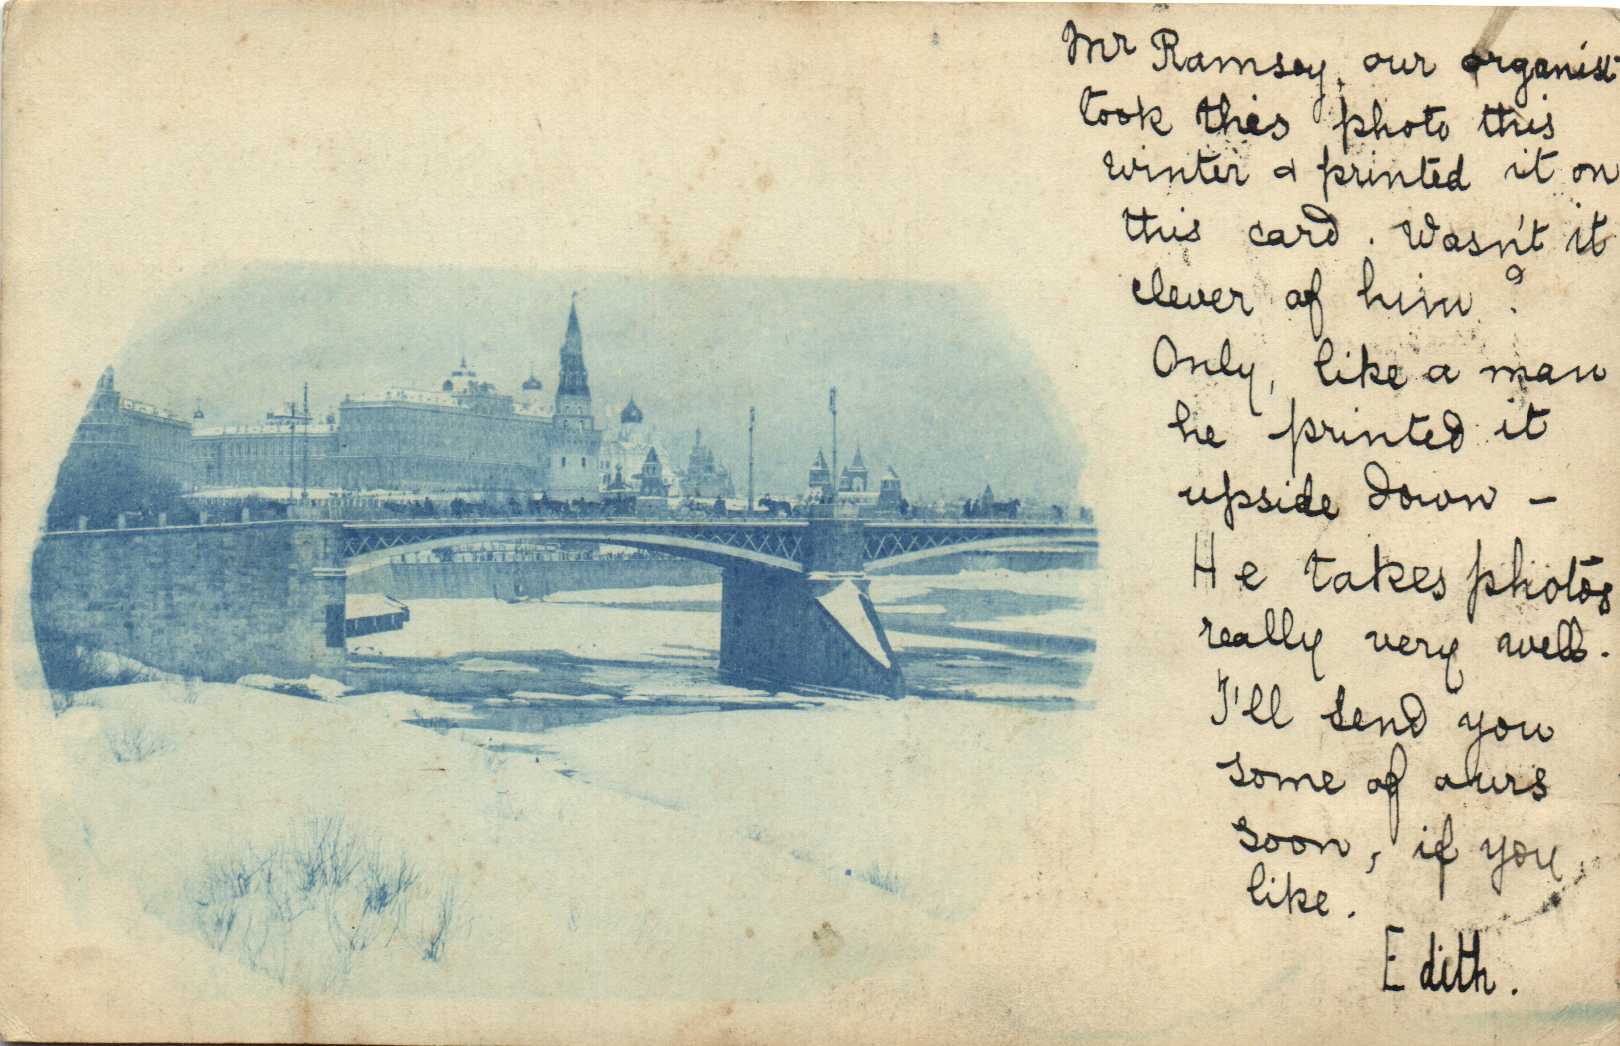 Mr Ramsay, our organist
took this photo this
winter & printed it on
this card. Wasn't it
clever of him?
Only, like a man
he printed it
upside down –
He takes photos
really very well.
I'll send you
some of ours
soon, if you
like.
Edith.